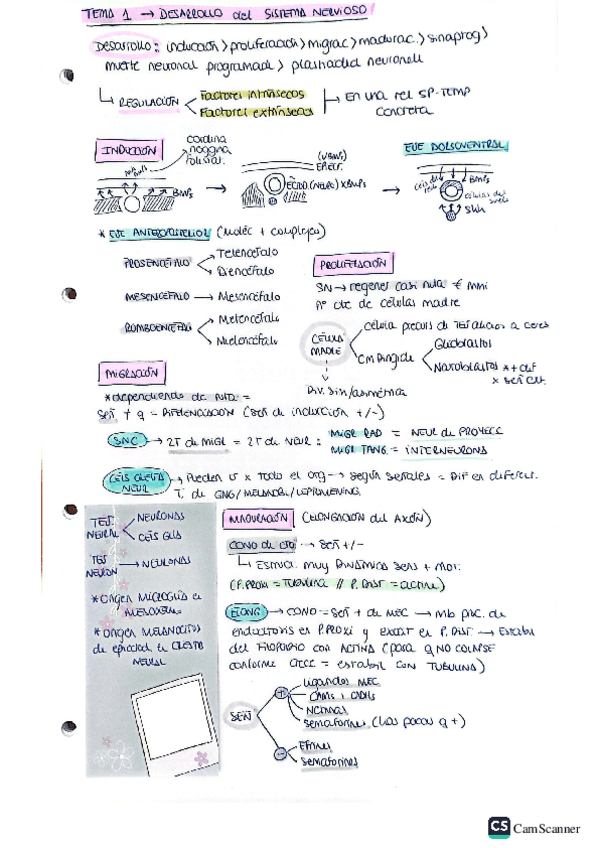 TEMA 1 → DESARROLLO del SISTEMA NERVIOSO
Desarrollo: inducción > proliferación > migrac > madurac. > sinaptog >
muerte neuronal programada > plasticidad neuronal
REGULACIÓN
Factores intrínsecos
Factores extrínsecos
En una rel SP-TEMP
concreta
INDUCCIÓN
cordina
noggina
folistat.
BMPs
(↓BMPs)
EPIECT.
ECTO (NEURO) x BMPs
EJE DORSOVENTRAL
BMPs
células del
suelo
Shh
* EJE ANTEROPOSTERIOR (moléc + complejas)
PROSENCÉFALO
Telencéfalo
Diencéfalo
MESENCÉFALO → Mesencéfalo
ROMBOENCÉFALO
Metencéfalo
Mielencéfalo
PROLIFERACIÓN
SN → regener casi nula €
nº cte de células madre
CÉLULA
MADRE
célula precurs de
CM Pluride
Glioblastos
Neuroblastos
Div. sim/asimétrica
MIGRACIÓN
* dependiendo de
señ + q = DIFERENCIACIÓN (señ de inducción +/-)
SNC → 2T de MIGR = 2T de NEUR:
MIGR RAD = NEUR de PROYECC
MIGR TANG = INTERNEURONA
CÉLS CRESTA
NEUR
→ Pueden ir x todo el org → según señales = DIF en diferent.
T. de GNG/MELANOC./
TEJ
NEURAL
NEURONAS
CÉLS GLÍA
TEJ
NEURON
→ NEURONAS
* ORIGEN MICROGLÍA es
* ORIGEN MELANOCITOS
de epidermis es CRESTA
NEURAL
MADURACIÓN (ELONGACIÓN del AXÓN)
CONO DE CTO → señ +/-
Estruct. muy dinámica sens + mot.
(P. PROXI = TUBULINA // P. DIST = ACTINA)
ELONG → CONO = señ + de MEC → mb pac. de
endocitosis en P. PROXI y exocit en P. DIST. → Estabil
del FILOPODIO con ACTINA (para q NO COLAPSE
conforme crece = estabil con TUBULINA)
SEÑ
+
ligandos MEC
CAMs i CADHs
Netrinas
Semaforinas (las pocas q +)
-
Efrinas
Semaforinas
CS CamScanner